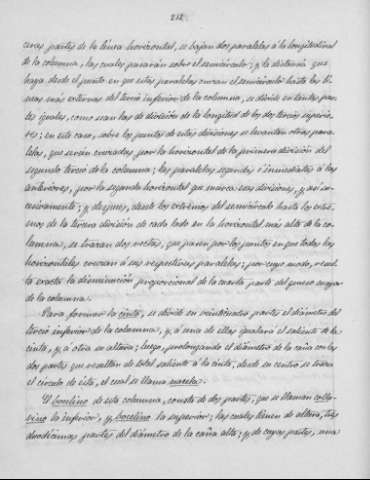 212.
ceras partes de la línea horizontal, se bajan dos paralelas á la longitudinal
de la columna, las cuales pararán sobre el semicírculo; y la distancia que
haya desde el punto en que estas paralelas cruzan el semicírculo hasta las lí-
neas más externas del tercio inferior de la columna, se divide en tantas par-
tes iguales, como sean las de división de la longitud de los dos tercios superio-
res; en este caso, sobre los puntos de estas divisiones se levantan otras para-
lelas, que serán cruzadas por la horizontal de la primera división del
segundo tercio de la columna; las paralelas segundas é inmediatas á las
anteriores, por la segunda horizontal que marca sus divisiones, y así su-
cesivamente; y despues, desde los extremos del semicírculo hasta los extre-
mos de la tercera división de cada lado en la horizontal más alta de la co-
lumna, se trazan dos rectas, que pasen por los puntos en que todas las
horizontales cruzan á sus respectivas paralelas; por cuyo modo, resul-
ta exacta la disminución proporcional de la cuarta parte del grueso mayor
de la columna.
Para formar la cinta, se divide en veinticuatro partes el diámetro del
tercio inferior de la columna, y, á una de ellas igualará el saliente de la
cinta, y á otra su altura; luego, prolongando el diámetro de la caña con las
dos partes que resultan de total saliente á la cinta, desde su centro se traza
el círculo de ésta, el cual se llama
El bocelino de esta columna, consta de dos partes, que se llaman colla-
rino la inferior, y bocelino la superior; las cuales tienen de altura, tres
dozavas partes del diámetro de la caña alta; y de cuyas partes, una